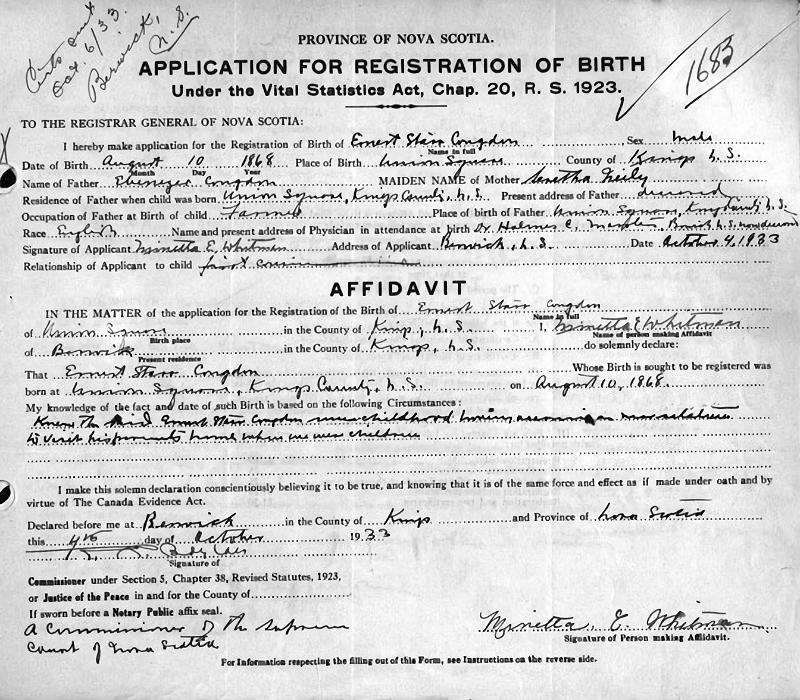 Certs sent
Oct. 6/33
Berwick,
N. S.
1683
PROVINCE OF NOVA SCOTIA.
APPLICATION FOR REGISTRATION OF BIRTH
Under the Vital Statistics Act, Chap. 20, R. S. 1923.
TO THE REGISTRAR GENERAL OF NOVA SCOTIA:
I hereby make application for the Registration of Birth of Ernest Starr Congdon Sex Male
Name in full
Date of Birth August 10 1868 Place of Birth Union Square County of Kings N. S.
Month Day Year
Name of Father Ebenezer Congdon MAIDEN NAME of Mother Neily
Residence of Father when child was born Union Square, Kings County, N. S. Present address of Father deceased
Occupation of Father at Birth of child Farmer Place of birth of Father Union Square, Kings County N. S.
Race English Name and present address of Physician in attendance at birth Dr. Holmes C. N. S.
Signature of Applicant Minetta E. Whitman Address of Applicant Berwick, N. S. Date October 4, 1933
Relationship of Applicant to child first cousin
AFFIDAVIT
IN THE MATTER of the application for the Registration of the Birth of Ernest Starr Congdon
Name in full
of Union Square in the County of Kings, N. S. I, Minetta E Whitman
Birth place Name of person making Affidavit
of Berwick in the County of Kings, N. S. do solemnly declare:
Present residence
That Ernest Starr Congdon Whose Birth is sought to be registered was
born at Union Square, Kings County, N. S. on August 10, 1868.
My knowledge of the fact and date of such Birth is based on the following Circumstances:
Knew the said Ernest Starr Congdon since childhood having
to visit his parents home when we were children
I make this solemn declaration conscientiously believing it to be true, and knowing that it is of the same force and effect as if made under oath and by
virtue of The Canada Evidence Act.
Declared before me at Berwick in the County of Kings and Province of Nova Scotia
this 4th day of October 1933
Signature of
Commissioner under Section 5, Chapter 38, Revised Statutes, 1923,
or Justice of the Peace in and for the County of
If sworn before a Notary Public affix seal.
A Commissioner of the Supreme
Court of Nova Scotia
Minetta E. Whitman
Signature of Person making Affidavit.
For Information respecting the filling out of this Form, see Instructions on the reverse side.